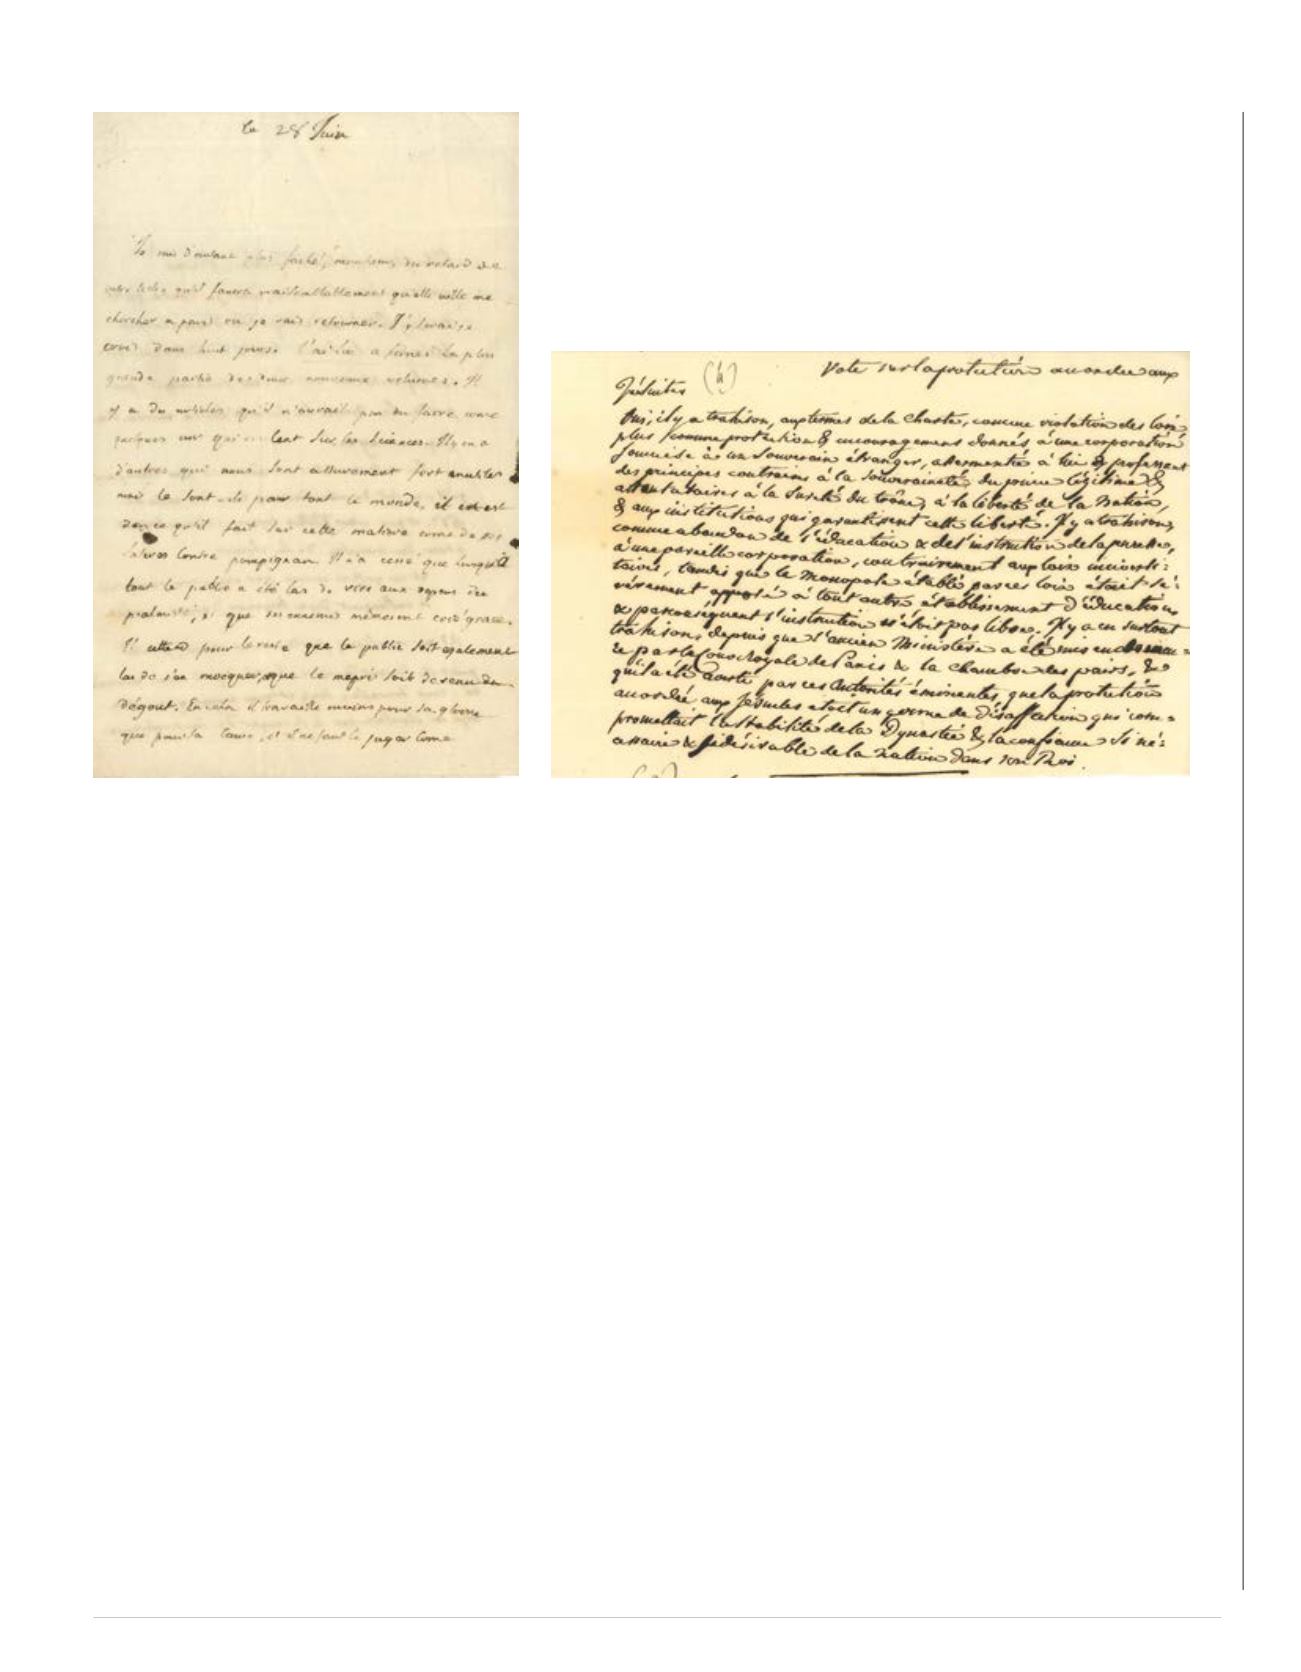 Le 28 Juin
Je suis d'autant plus faché, monsieur, du retard de
qu'il faudra vraisemblablement qu'elle me
chercher a paris ou je vais retourner. J'y serai, je
crois dans huit jours. J'ai lu a la plus
grande partie des deux nouveaux volumes. Il
y a du qu'il n'aurait pas du faire, come
quelques uns qui sur les Il y en a
d'autres qui nous sont assurement fort
mais le sont-ils pour tout le monde. il en est
de ce qu'il fait sur cette matiere come de ses
contre pompignan. Il n'a cessé que lorsqu'il
tout le public a été las de rire aux du
psalmiste, et que
Il attend pour le reste que le public soit egalement
las de s'en mocquer, et que le mepris soit devenu du
dégout. En cela il travaille moins pour sa gloire
que pour la et il ne faut le juger come
Vote sur la protection accordée aux
Jésuites (4)
Oui, il y a trahison, aux termes de la Charte, comme violation des loix,
plus comme protection & encouragement donnés à une corporation
soumise à un Souverain étranger, assermentée à lui & professant
des principes contraires à la Souveraineté du prince légitime &
attentatoires à la Sureté du trône, à la liberté de la Nation,
& aux institutions qui garantissent cette liberté. Il y a trahison,
comme abandon de l'éducation & de l'instruction de la jeunesse,
à une pareille corporation, contrairement aux loix universi=
taires, tandis que le Monopole établi par ces loix étoit sé=
vèrement opposé à tout autre établissement d'éducation
& par conséquent l'instruction n'étoit pas libre. Il y a eu surtout
trahison, depuis que l'ancien Ministère a été mis en demeu=
re par la Cour Royale de Paris & la Chambre des pairs, &
qu'il a été par ces Autorités éminentes, que la protection
accordée aux Jésuites étoit un germe de désaffection qui com=
promettait la stabilité de la Dynastie & la confiance si né=
cessaire & si désirable de la Nation dans son Roi.